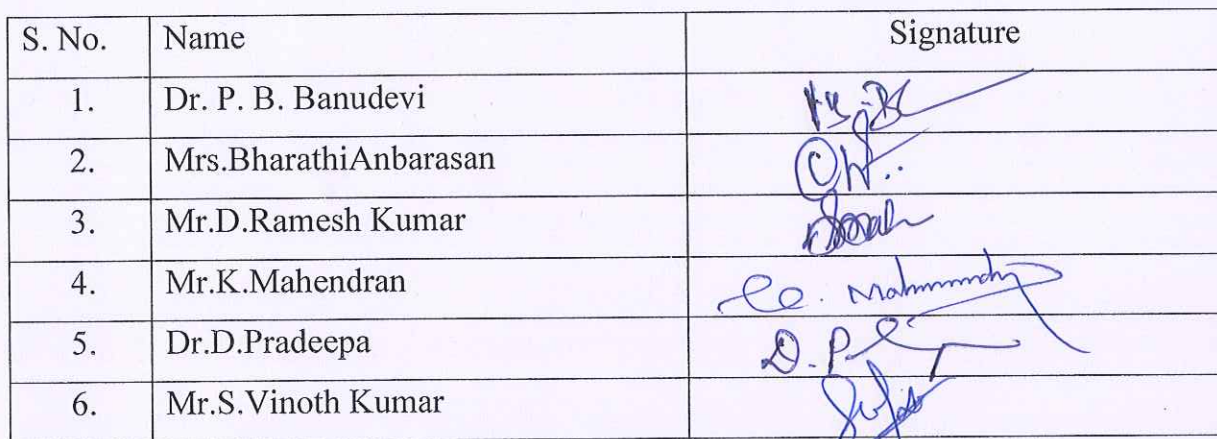 S. No. Name Signature
1. Dr. P. B. Banudevi
2. Mrs.BharathiAnbarasan
3. Mr.D.Ramesh Kumar
4. Mr.K.Mahendran
5. Dr.D.Pradeepa D.P
6. Mr.S.Vinoth Kumar